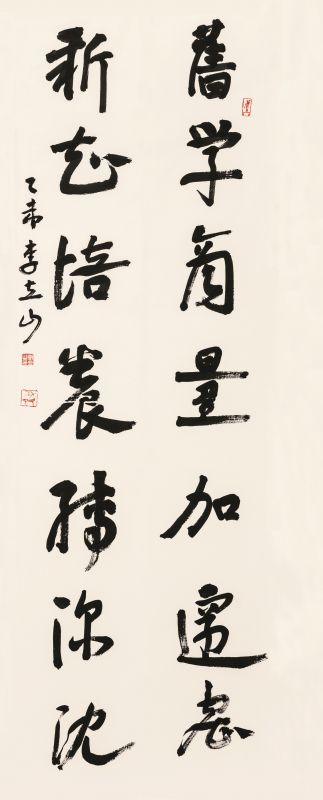 舊学商量加邃密
新知培养转深沈
乙未李立山